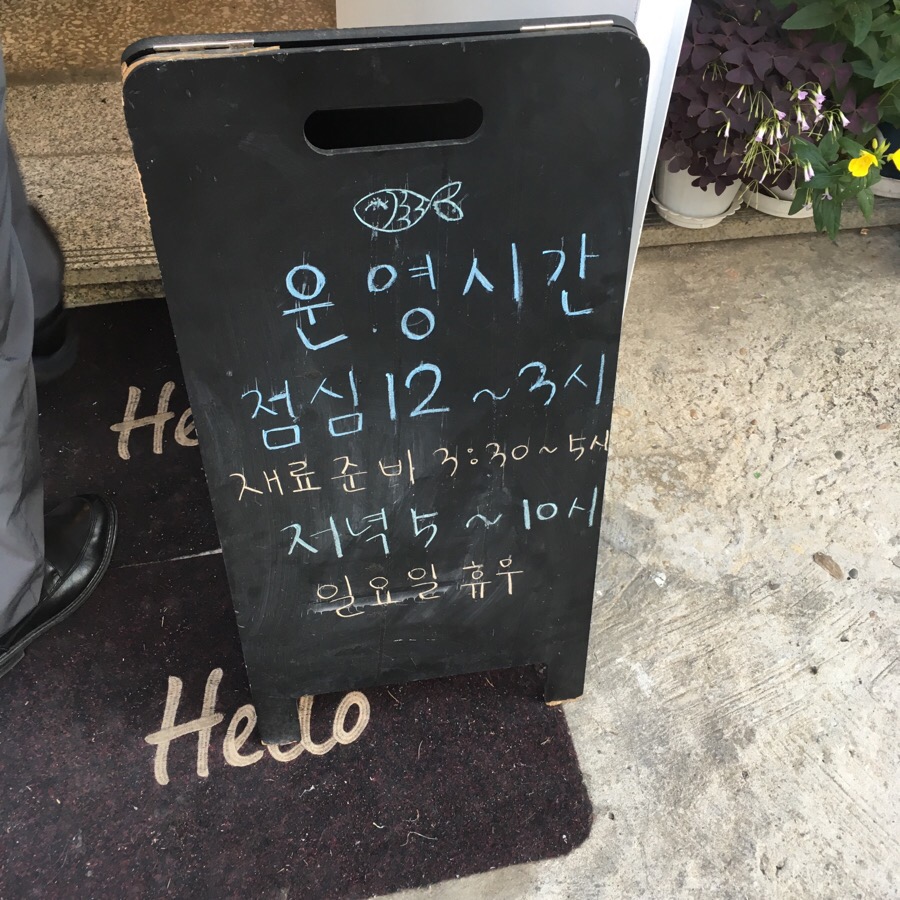 운영시간
점심 12 ~ 3시
재료준비 3:30 ~ 5시
저녁 5 ~ 10시
일요일 휴무
He
Hello